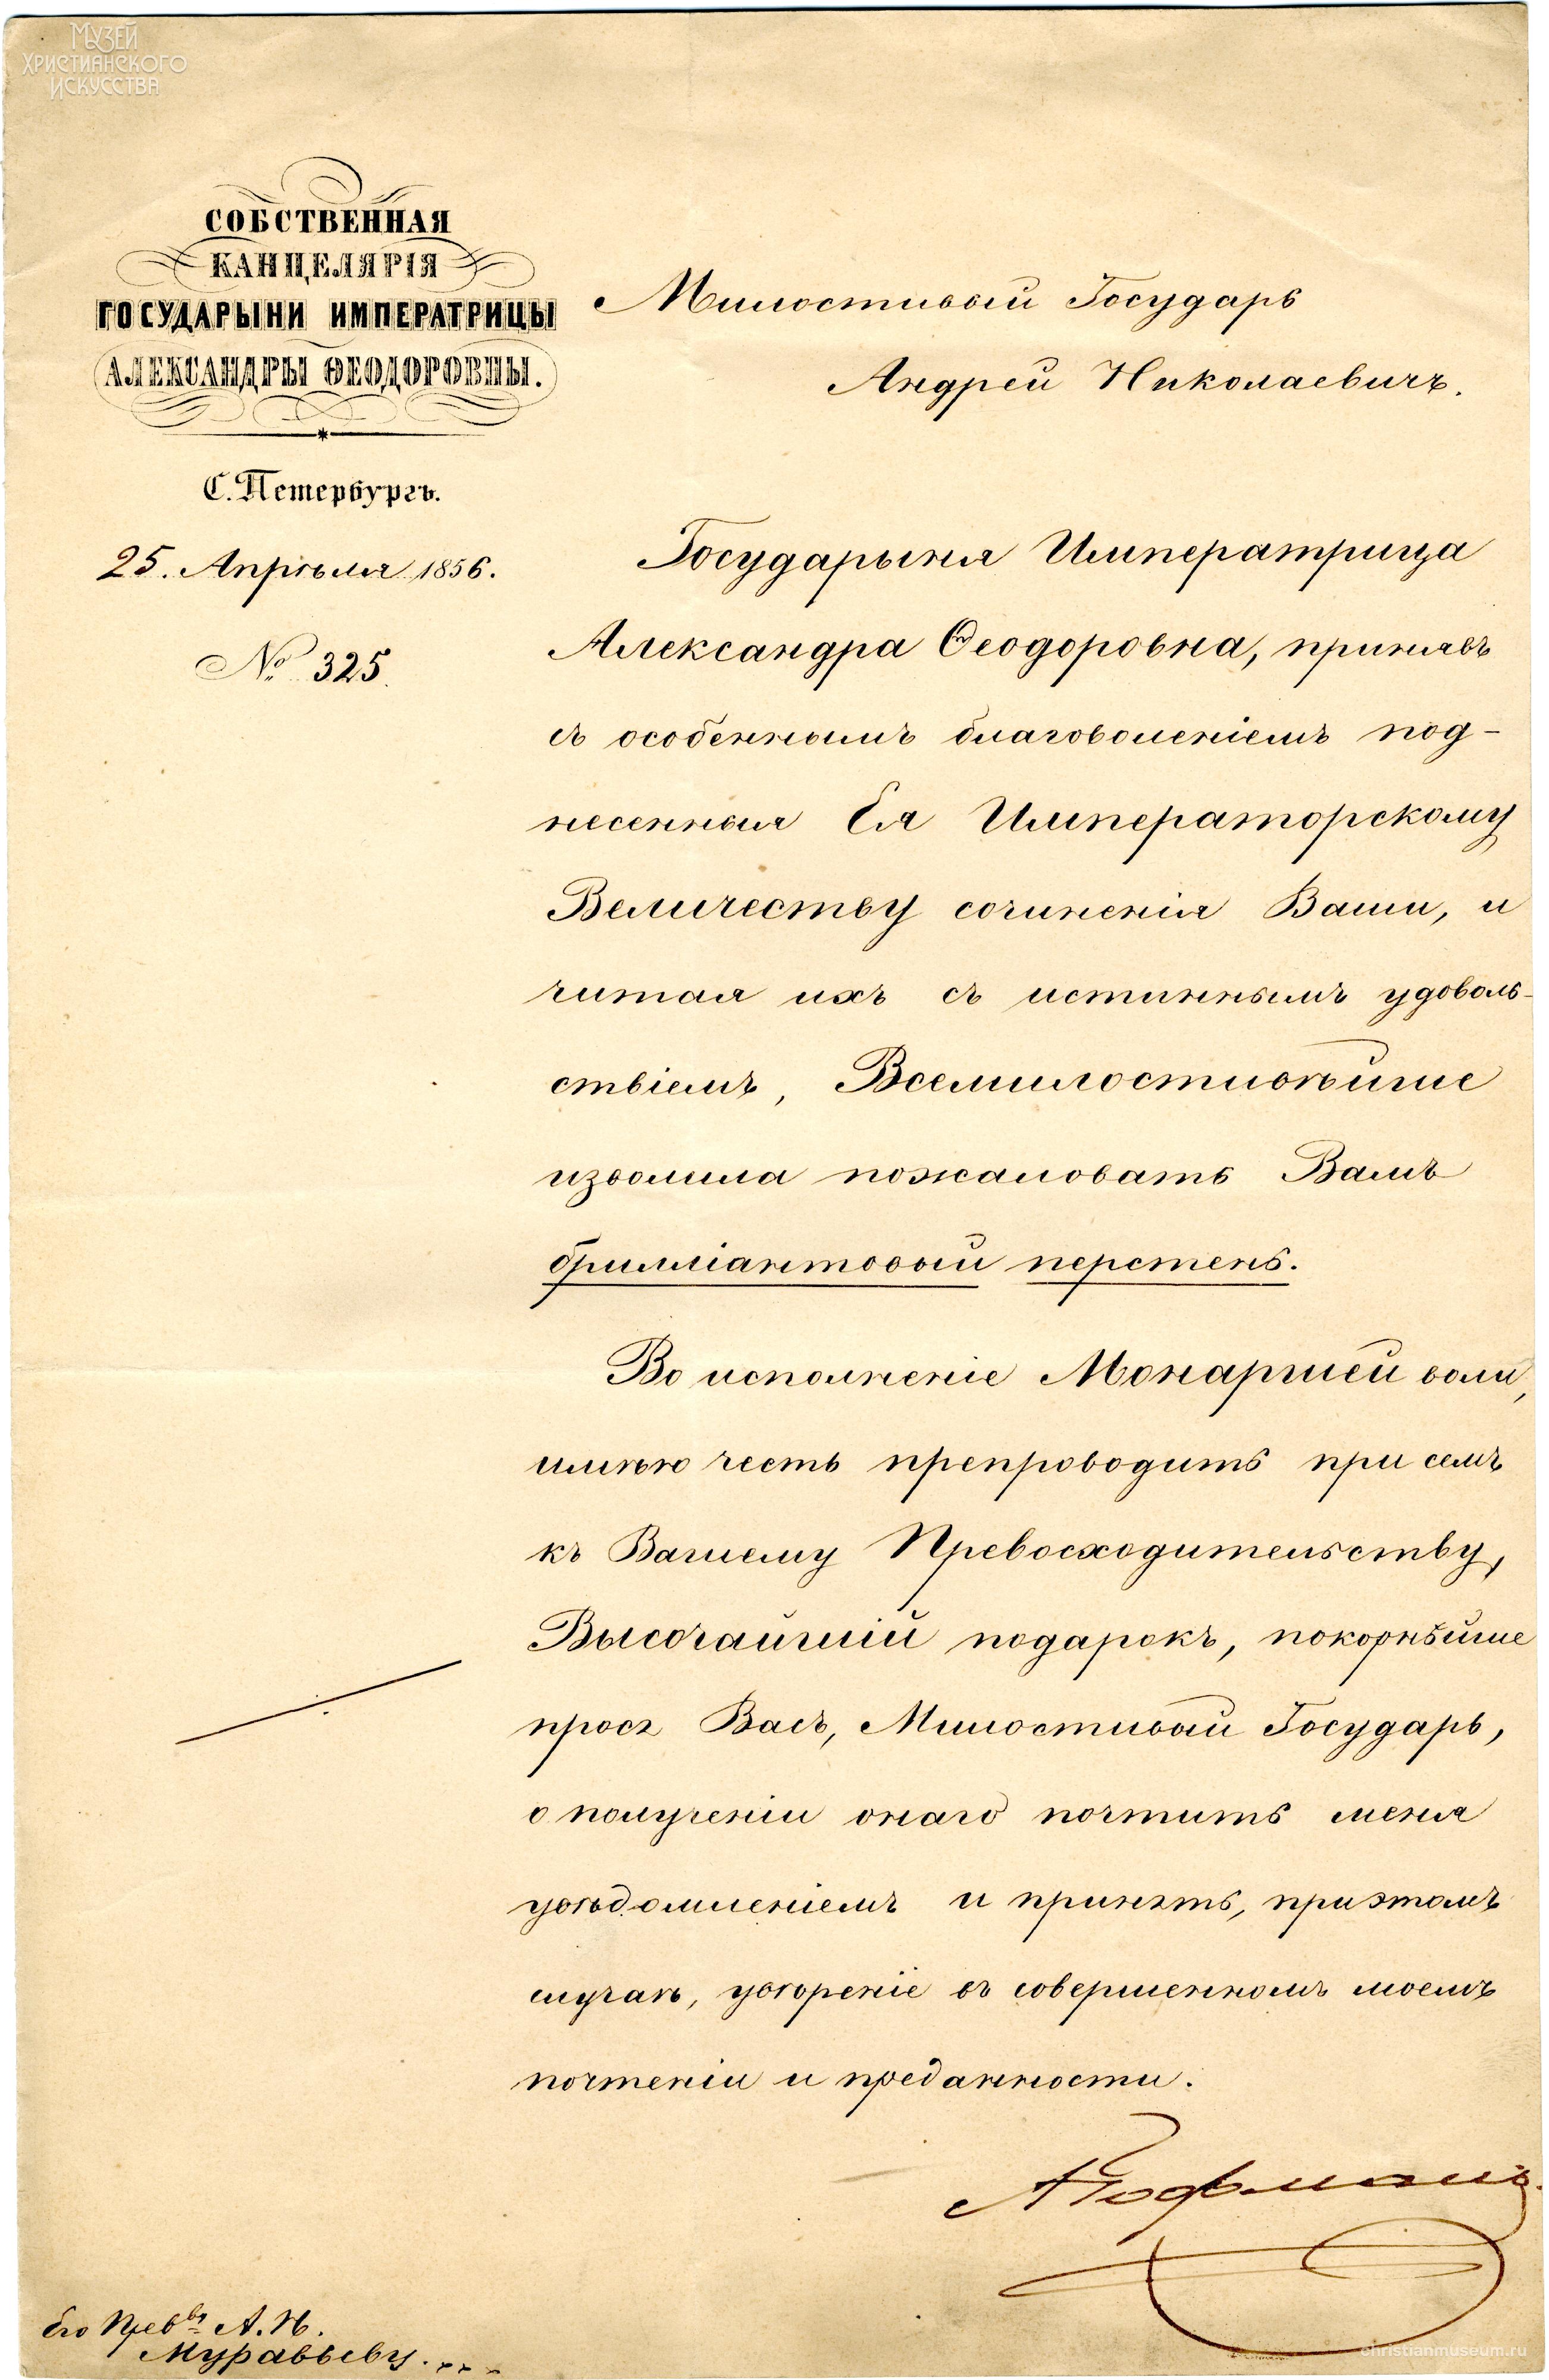 Музей
Христианского
Искусства
СОБСТВЕННАЯ
КАНЦЕЛЯРІЯ
ГОСУДАРЫНИ ИМПЕРАТРИЦЫ
АЛЕКСАНДРЫ ѲЕОДОРОВНЫ.
С. Петербургъ.
25. Апрѣля 1856.
№ 325.
Милостивый Государь
Андрей Николаевичъ.
Государыня Императрица
Александра Ѳеодоровна, принявъ
съ особеннымъ благоволеніемъ под-
несенныя Ея Императорскому
Величеству сочиненія Ваши, и
читая ихъ съ истиннымъ удоволь-
ствіемъ, Всемилостивѣйше
изволила пожаловать Вамъ
брилліантовый перстень.
Во исполненіе Монаршей воли,
имѣю честь препроводить при семъ
къ Вашему Превосходительству,
Высочайшій подарокъ, покорнѣйше
прося Васъ, Милостивый Государь,
о полученіи онаго почтить меня
увѣдомленіемъ и принять, при этомъ
случаѣ, увѣреніе въ совершенномъ моемъ
почтеніи и преданности.
А Гофманъ.
Его Прев-ву А. Н.
Муравьеву.
christianmuseum.ru